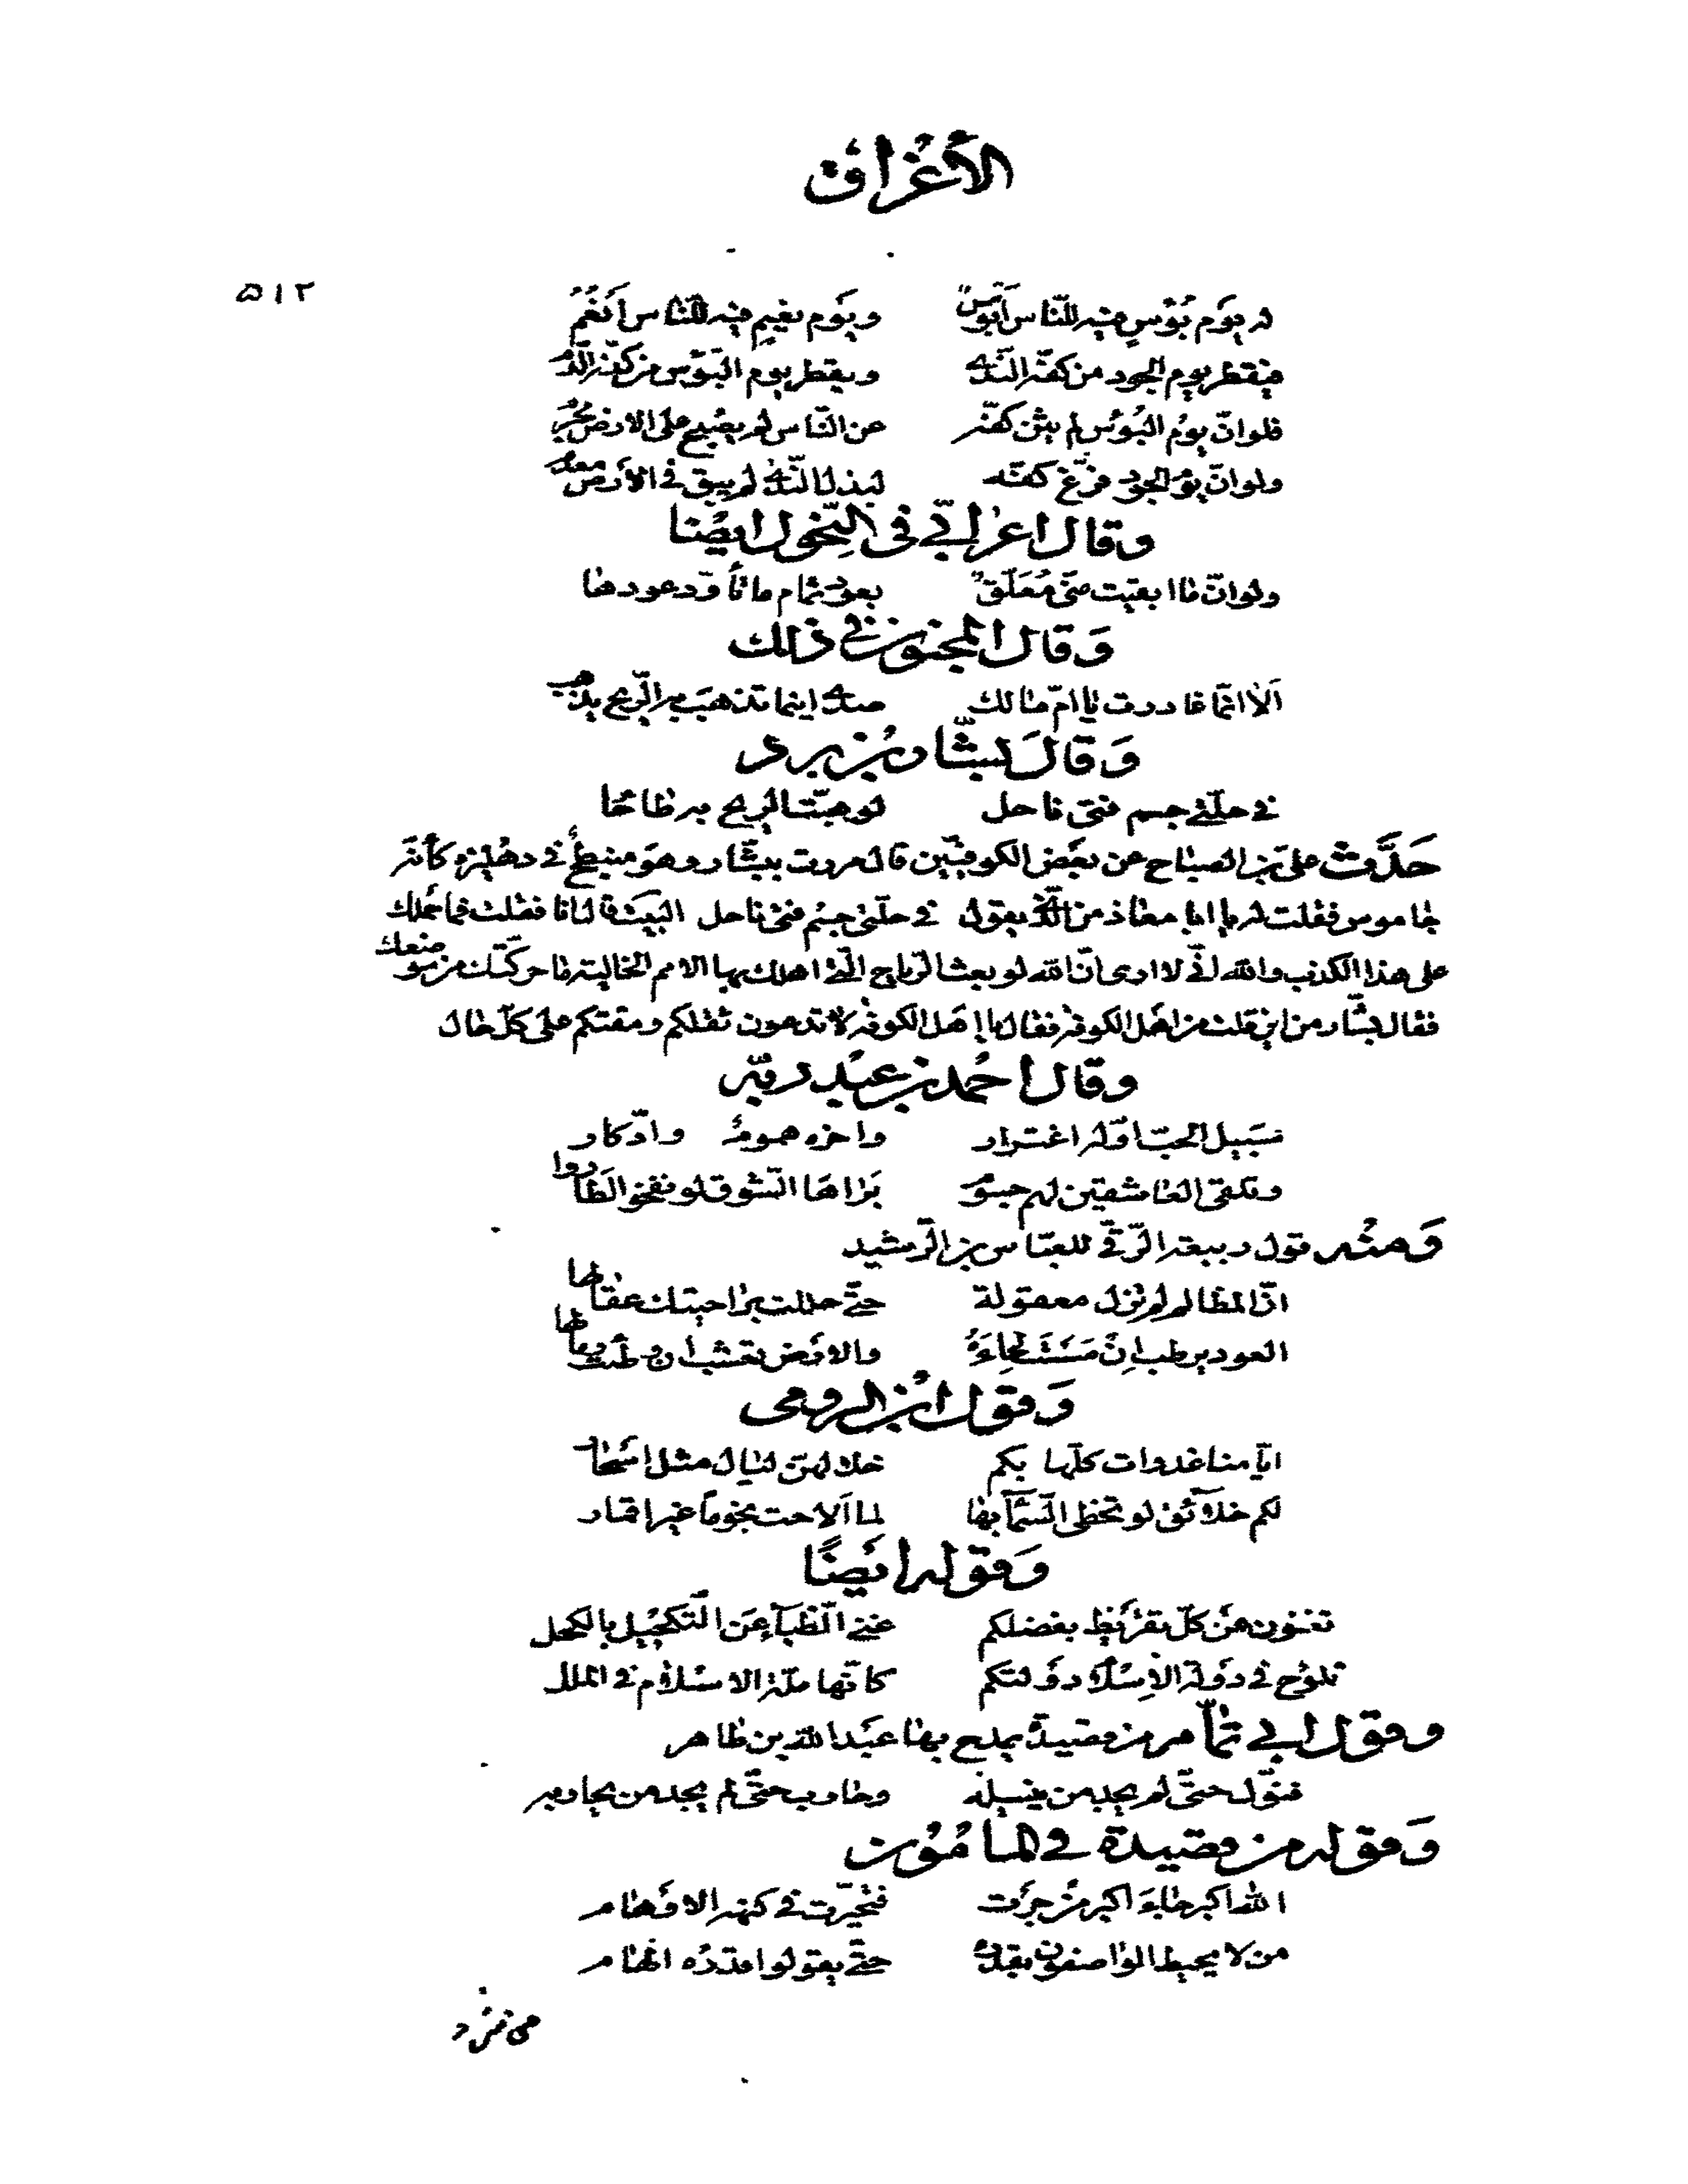 الأغراق
٥١٢
له يوم بُؤسٍ فيه للنّاس أبؤسٌ ويوم نعيمٍ فيه للنّاس أنعُمُ
فيقطر يوم الجود من كفّه النّدى ويقطر يوم البؤس من كفّه الدّم
فلو انّ يوم البُؤس لم يثن كفّه عن النّاس لم يصبح على الارض مجرم
ولو انّ يوم الجود فرّغ كفّه لبذل النّدى لم يبق فى الأرض معدم
وقال اعرابيّ فى النّحول ايضًا
ولو انّ ما ابقيت منّى مُعَلّقٌ بعود ثمام ما تأوّد عودها
وَقال المجنون فى ذلك
اَلا انّما غادرت يا امّ مالك صدى اينما تذهب به الرّيح يذهب
وَقالَ بشّار بن برد
فى حلّتى جسم فتى ناحل لو هبّت الريح به طاحا
حَدَّث علىّ بن الصباح عن بعض الكوفيّين قال مررت ببشّار وهو منبطحٌ فى دهليزه كأنّه
جاموس فقلت له يا ابا معاذ من الّذى يقول فى حلّتى جسم فتى ناحل البيت قال انا فقلت فما حملك
على هذا الكذب والله انّى لا ارى انّ الله لو بعث الرّياح الّتى اهلك بها الامم الخالية ما حركتك من موضعك
فقال بشّار من اين قلت من اهل الكوفة فقال يا اهل الكوفة لا تدعون ثقلكم ومقتكم على كلّ حال
وقال احمد بن عبد ربّه
سبيل الحبّ اوّله اغترار واخره هموم وادّكار
وتلقى العاشقين لهم جسوم بَراها الشّوق لو نفخوا لطاروا
وَمثله قول ربيعة الرّقّى للعبّاس بن الرّشيد
انّ المظالم لم تزل معقولة حتّى حللت براحتيك عقالها
العود يرطب إنْ مَسَسْتَ لِحاءَهُ والارض تعشب ان وطئت رمالها
وَقول ابن الرومى
ايّامنا غدوات كلّها بكم خلالهنّ ليال مثل اسحار
لكم خلآئق لو تحظى السّمآ بها لما اَلاحت نجوماً غير اقمار
وَقوله ايضًا
تغنون عن كلّ تقريظ بفضلكم غنى الظّبآء عن التّكحيل بالكحل
تلوح فى دولة الإسلام دولتكم كانّها ملّة الاسلام فى الملل
وقول ابى تمّام من قصيدة يمدح بها عبد الله بن طاهر
فنوّل حتّى لم يجد من ينيله وحارب حتّى لم يجد من يحاربه
وَقوله من قصيدة فى المأمُون
الله اكبر جاءَ اكبر من جرت فتحيّرت فى كنهه الاوهام
من لا يحيط الواصفون بقدره حتّى يقولوا قدره الهام